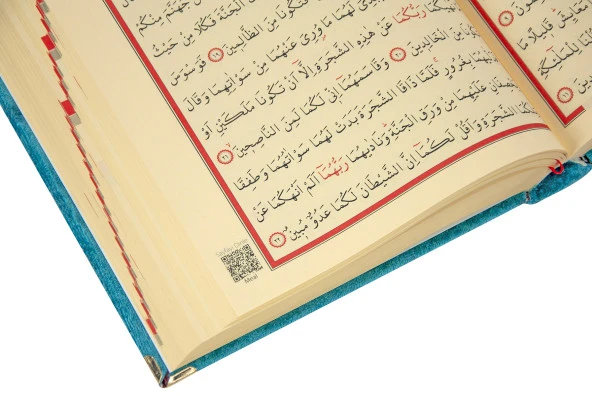 جَهَنَّمَ مِنْكُمْ
الْجَنَّةَ فَكُلَا مِنْ حَيْثُ
فَتَكُونَا مِنَ الظَّالِمِينَ ﴿١٩﴾ فَوَسْوَسَ
لَهُمَا مَا وُرِىَ عَنْهُمَا مِنْ سَوْاٰتِهِمَا وَقَالَ
رَبُّكُمَا عَنْ هٰذِهِ الشَّجَرَةِ اِلَّٓا اَنْ تَكُونَا مَلَكَيْنِ اَوْ
مِنَ الْخَالِدِينَ ﴿٢٠﴾ وَقَاسَمَهُمَٓا اِنّ۪ى لَكُمَا لَمِنَ النَّاصِح۪ينَ ﴿٢١﴾
بِغُرُورٍ فَلَمَّا ذَاقَا الشَّجَرَةَ بَدَتْ لَهُمَا سَوْاٰتُهُمَا وَطَفِقَا
عَلَيْهِمَا مِنْ وَرَقِ الْجَنَّةِ وَنَادٰيهُمَا رَبُّهُمَٓا اَلَمْ اَنْهَكُمَا عَنْ
الشَّجَرَةِ وَاَقُلْ لَكُمَٓا اِنَّ الشَّيْطَانَ لَكُمَا عَدُوٌّ مُب۪ينٌ ﴿٢٢﴾
Meal
مَعَايِشَ قَل۪يلًا مَا
لِلْمَلٰٓئِكَةِ